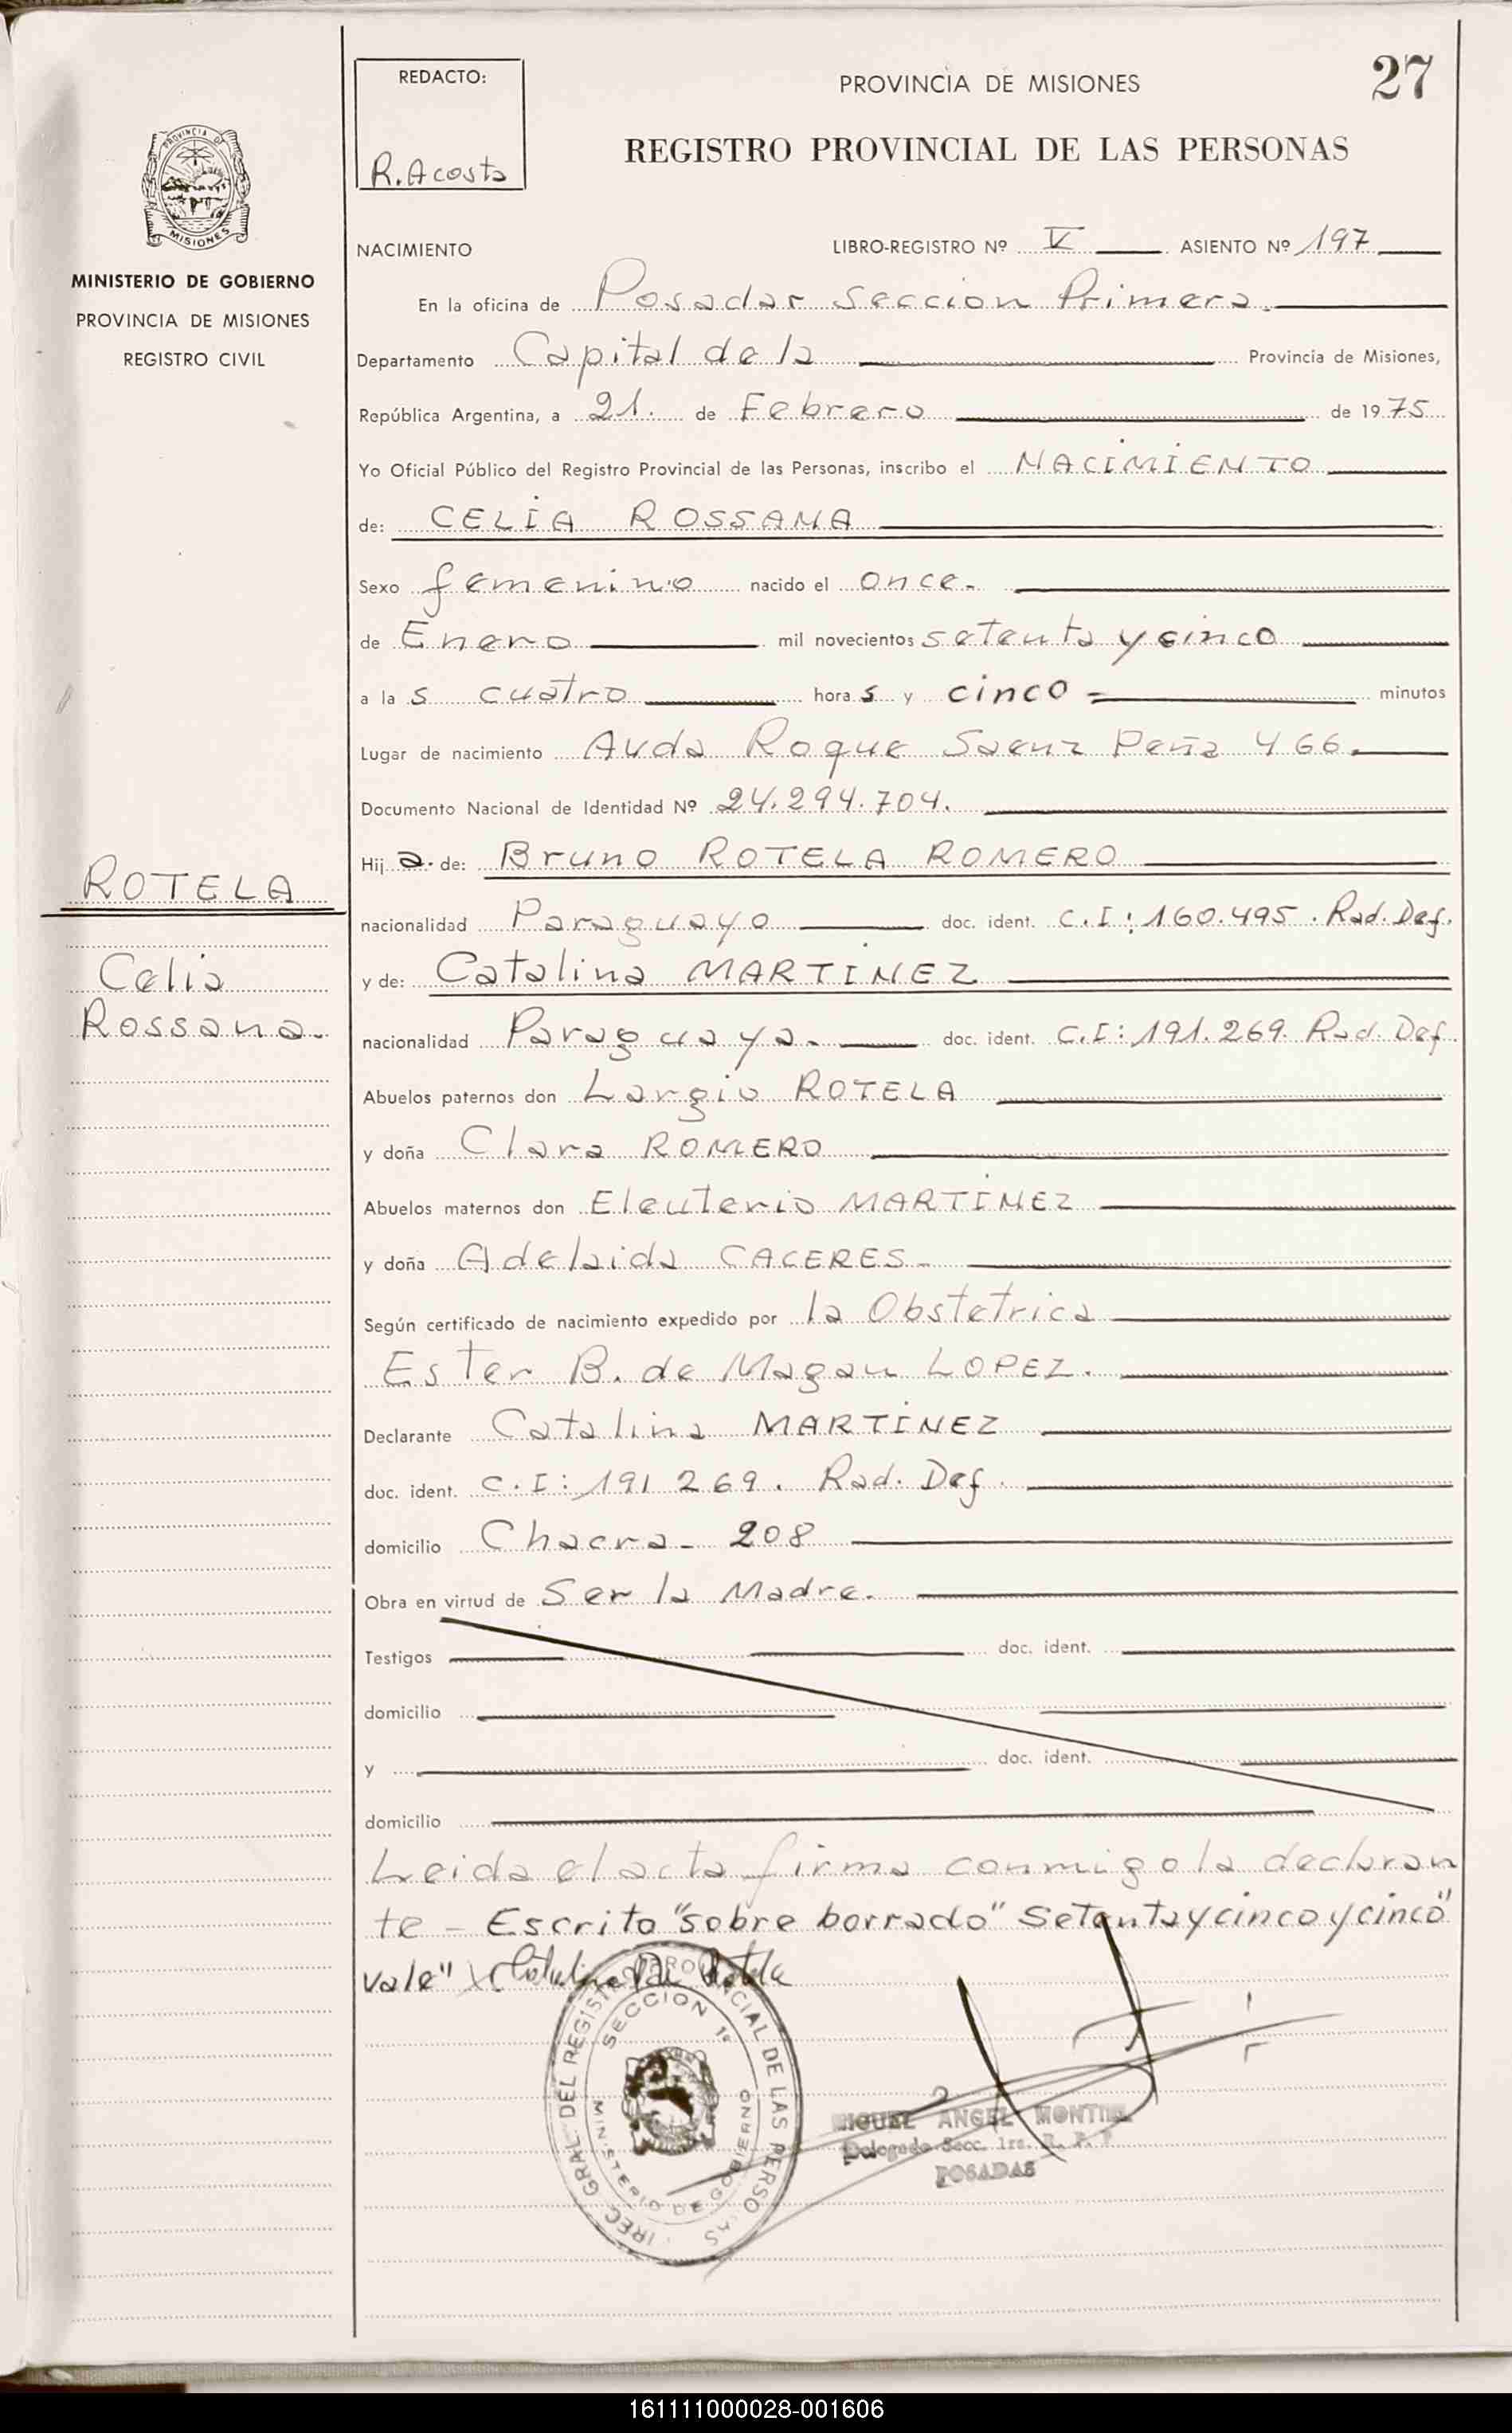 27
REDACTO:
R. Acosta
PROVINCIA DE MISIONES
REGISTRO PROVINCIAL DE LAS PERSONAS
PROVINCIA D
MISIONES
MINISTERIO DE GOBIERNO
PROVINCIA DE MISIONES
REGISTRO CIVIL
NACIMIENTO LIBRO-REGISTRO Nº V ASIENTO Nº 197
En la oficina de Posadas Seccion Primera.
Departamento Capital de la Provincia de Misiones,
República Argentina, a 21. de Febrero de 1975
Yo Oficial Público del Registro Provincial de las Personas, inscribo el NACIMIENTO
de: CELIA ROSSANA
Sexo femenino nacido el once.
de Enero mil novecientos setenta y cinco
a la s cuatro hora s y cinco = minutos
Lugar de nacimiento Avda Roque Saenz Peña 466.
Documento Nacional de Identidad Nº 24.294.704.
Hij a. de: Bruno ROTELA ROMERO
ROTELA
nacionalidad Paraguayo doc. ident. C.I: 160.495. Rad. Def.
y de: Catalina MARTINEZ
Celia
Rossana.
nacionalidad Paraguaya. doc. ident. C.I: 191.269. Rad. Def.
Abuelos paternos don Largio ROTELA
y doña Clara ROMERO
Abuelos maternos don Eleuterio MARTINEZ
y doña Adelaida CACERES.
Según certificado de nacimiento expedido por la Obstetrica
Ester B. de Magau LOPEZ.
Declarante Catalina MARTINEZ
doc. ident. C.I: 191 269. Rad. Def.
domicilio Chacra - 208
Obra en virtud de Ser la Madre.
Testigos doc. ident.
domicilio
y doc. ident.
domicilio
Leida el acta firma conmigo la declaran
te - Escrito "sobre borrado" Setenta y cinco y cinco"
vale" Catalina Rotela
IREC. GRAL DEL REGISTRO PROVINCIAL DE LAS PERSO AS
SECCION 1ª
MINISTERIO DE GOBIERNO
MIGUEL ANGEL MONTIEL
Delegado Secc. 1ra. R. P. P
POSADAS
161111000028-001606